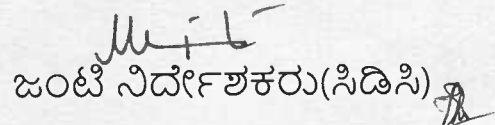 ಜಂಟಿ ನಿರ್ದೇಶಕರು(ಸಿಡಿಸಿ)